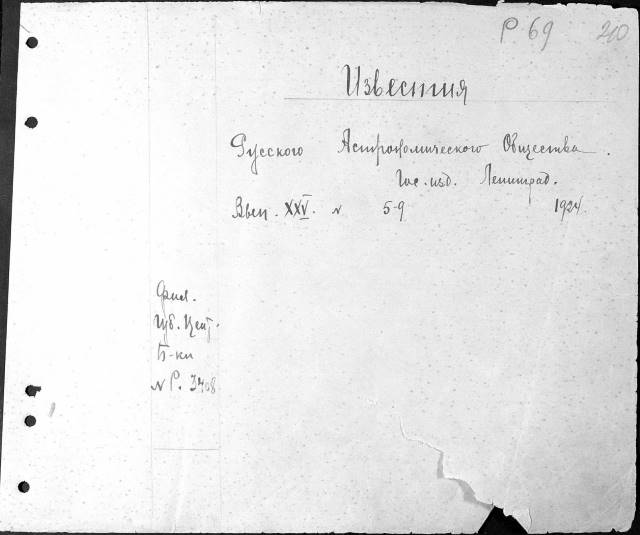 Р 69 210
Известия
Русского Астрономического Общества.
Гос. изд. Ленинград.
Вып. XXV. N 5-9 1924.
Фил.
Губ. Цент.
Б-ки
N Р. 3408